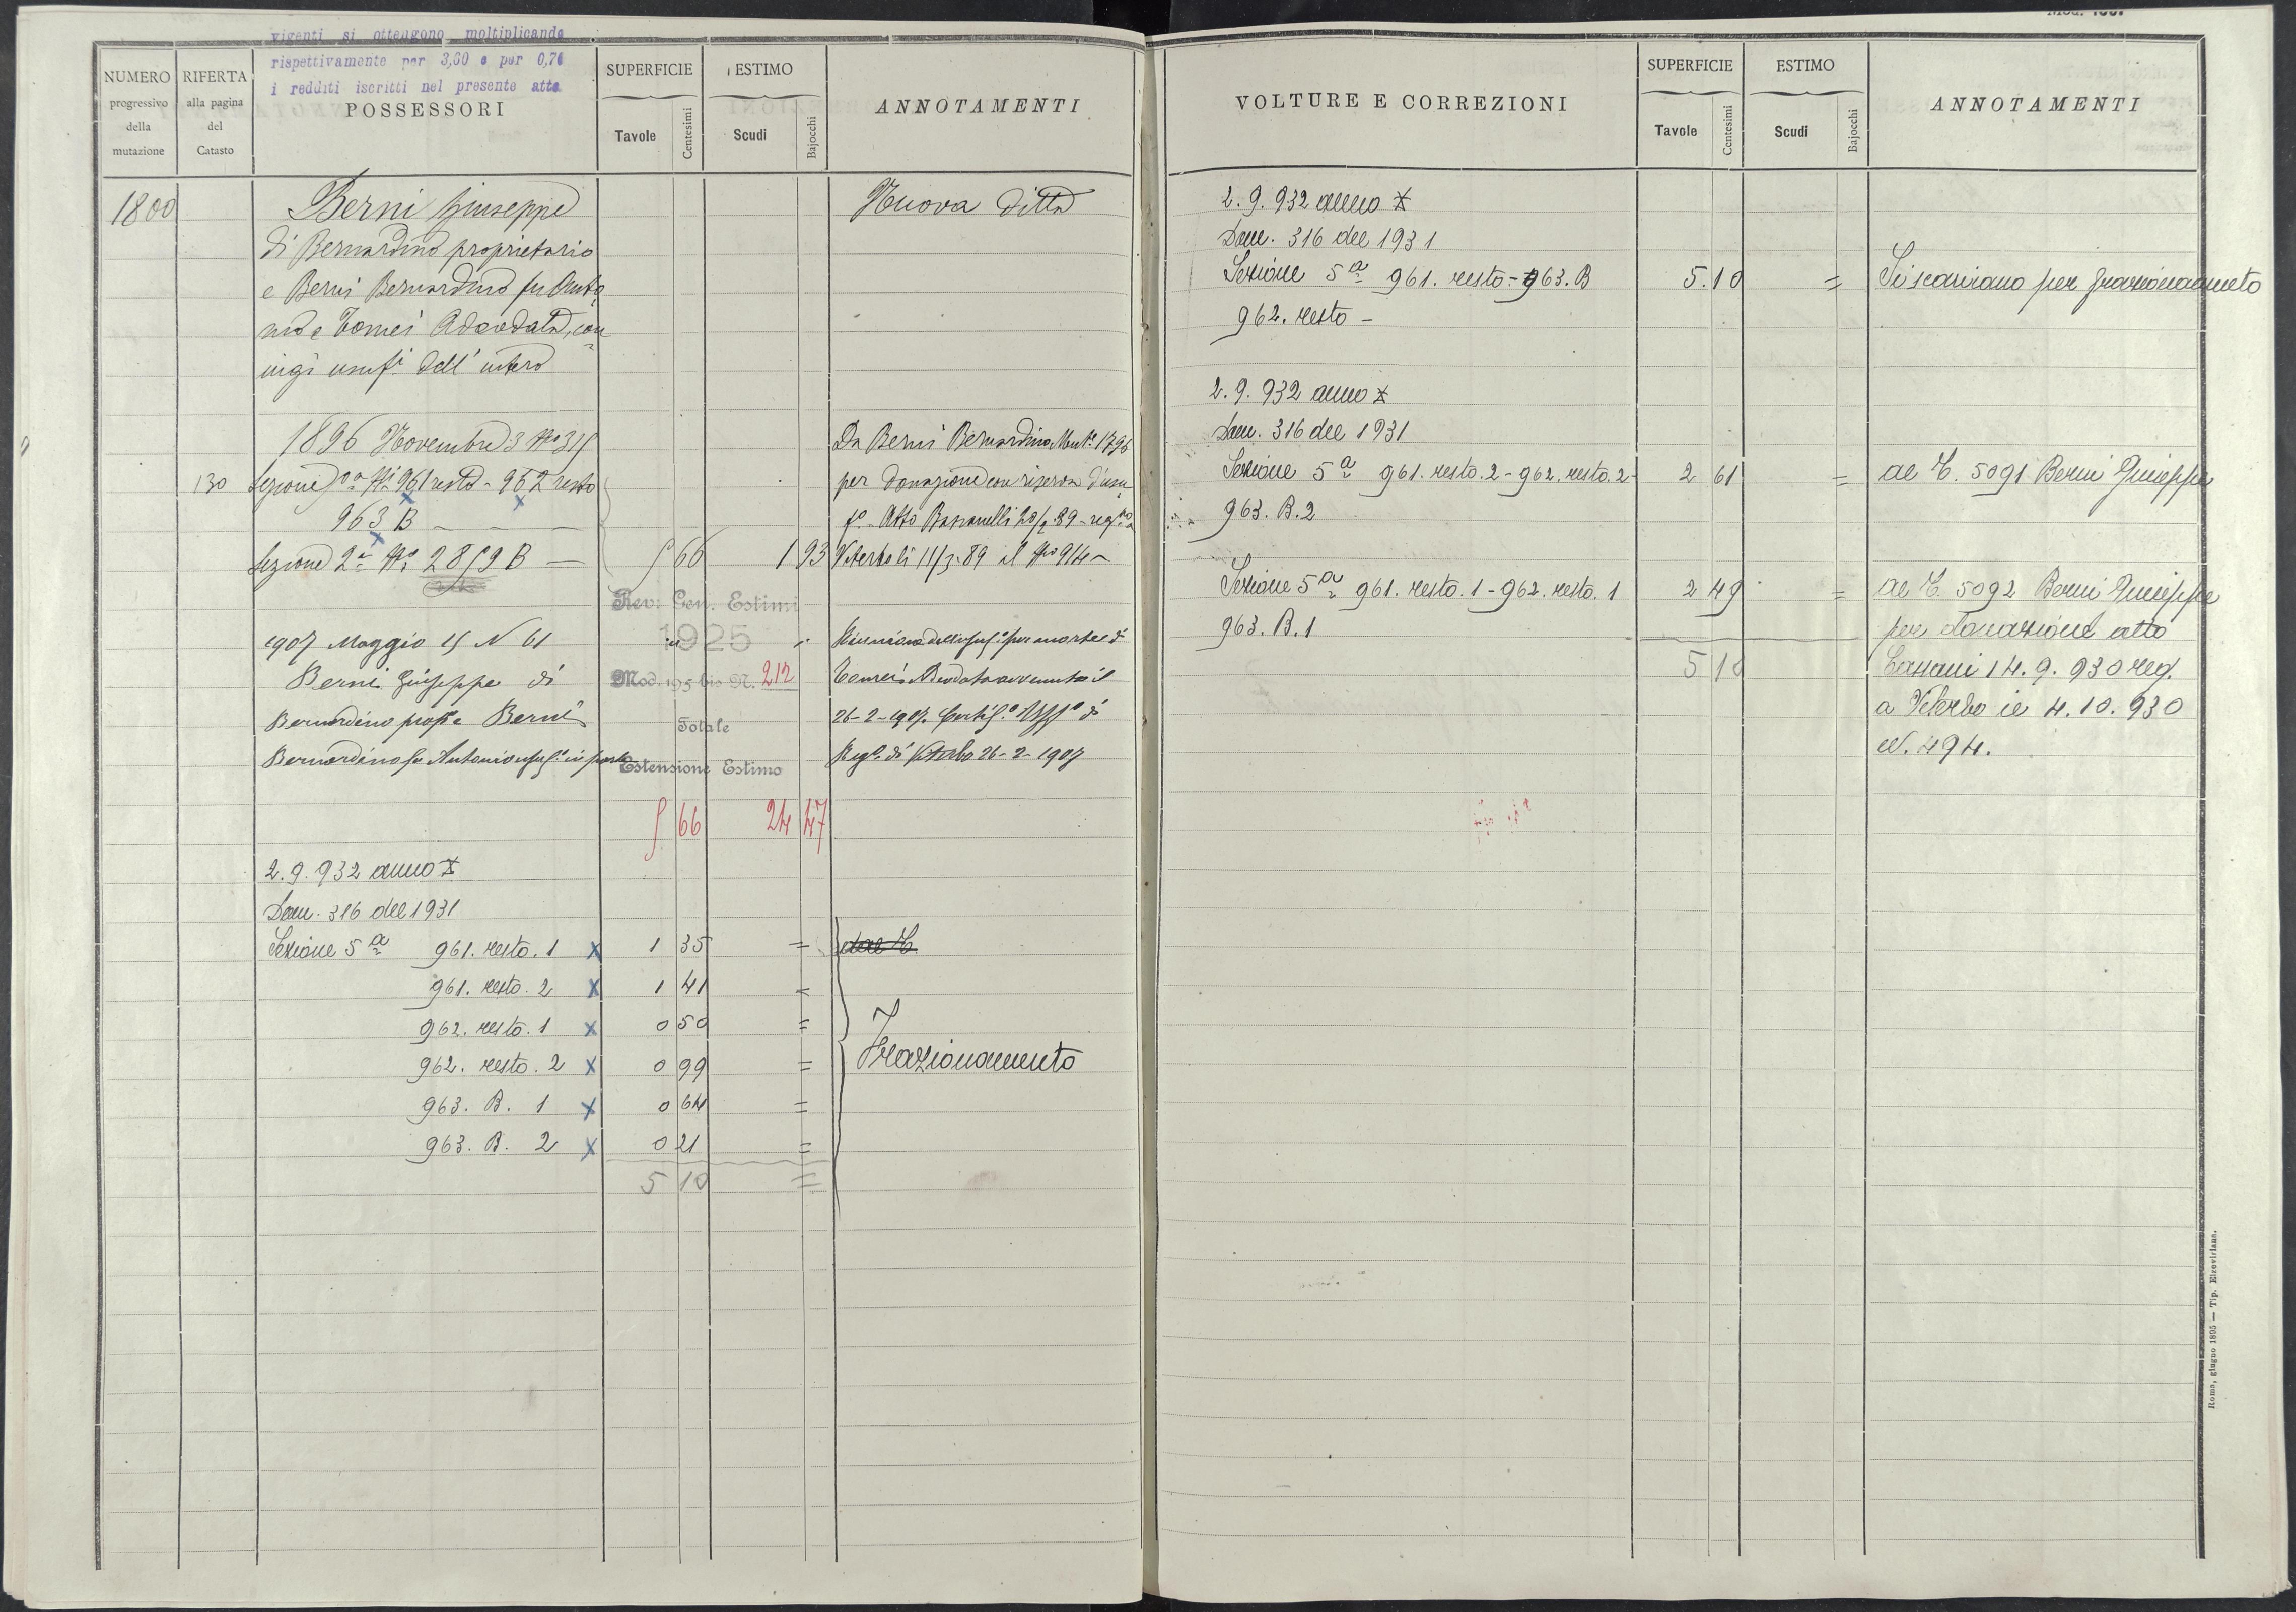 vigenti si ottengono moltiplicando
rispettivamente per 3,60 e per 0,76
i redditi iscritti nel presente atto
NUMERO
progressivo
della
mutazione
RIFERTA
alla pagina
del
Catasto
POSSESSORI
SUPERFICIE
Tavole
Centesimi
ESTIMO
Scudi
Bajocchi
ANNOTAMENTI
1800
Berni Giuseppe
di Bernardino proprietario
e Berni Bernardino fu Anto
nio e Tomei Adeodata, con
iugi usuf.i dell'intero
Nuova Ditta
1896 Novembre 3 No 315
130
Sezione 5a Ni 961 resto - 962 resto
963 B
Sezione 2a No 2859 B 5 66 1 93
Da Berni Bernardino Mut.e 1796
per donazione con riserva d'usu
f.o Atto Bassanelli 20/2 89 - reg.to a
Viterbo li 11/3 89 al No 914
Rev: Gen. Estimi
1925
Mod. 195 bis N. 212
Totale
Estensione Estimo
5 66 24 47
1907 Maggio 15 N 61
Berni Giuseppe di
Bernardino prop. e Berni
Bernardino fu Antonio usuf.o in parte
Riunione dell'usuf.o per morte di
Tomei Adeodata avvenuta il
26-2-1907. Certif.o Uff.o di
Reg.o di Viterbo 26-2-1907
2.9.932 anno X
Dom. 316 del 1931
Sezione 5a 961. resto. 1 x 1 35 =
961. resto. 2 x 1 41 =
962. resto. 1 x 0 50 =
962. resto. 2 x 0 99 =
963. B. 1 x 0 64 =
963. B. 2 x 0 21 =
5 10 =
dal T.
Frazionamento
VOLTURE E CORREZIONI
SUPERFICIE
Tavole
Centesimi
ESTIMO
Scudi
Bajocchi
ANNOTAMENTI
2.9.932 anno X
Dom. 316 del 1931
Sezione 5a 961. resto - 963. B 5.10 = Si scaricano per frazionamento
962. resto -
2.9.932 anno X
Dom. 316 del 1931
Sezione 5a 961. resto. 2 - 962. resto. 2 - 2 61 = al T. 5091 Berni Giuseppe
963. B. 2
Sezione 5a 961. resto. 1 - 962. resto. 1 2 49 = al T. 5092 Berni Giuseppe
963. B. 1
5 10
per donazione atto
14.9.930 reg.
a Viterbo il 4.10.930
N. 494.
Roma, giugno 1895 — Tip. Elzeviriana.